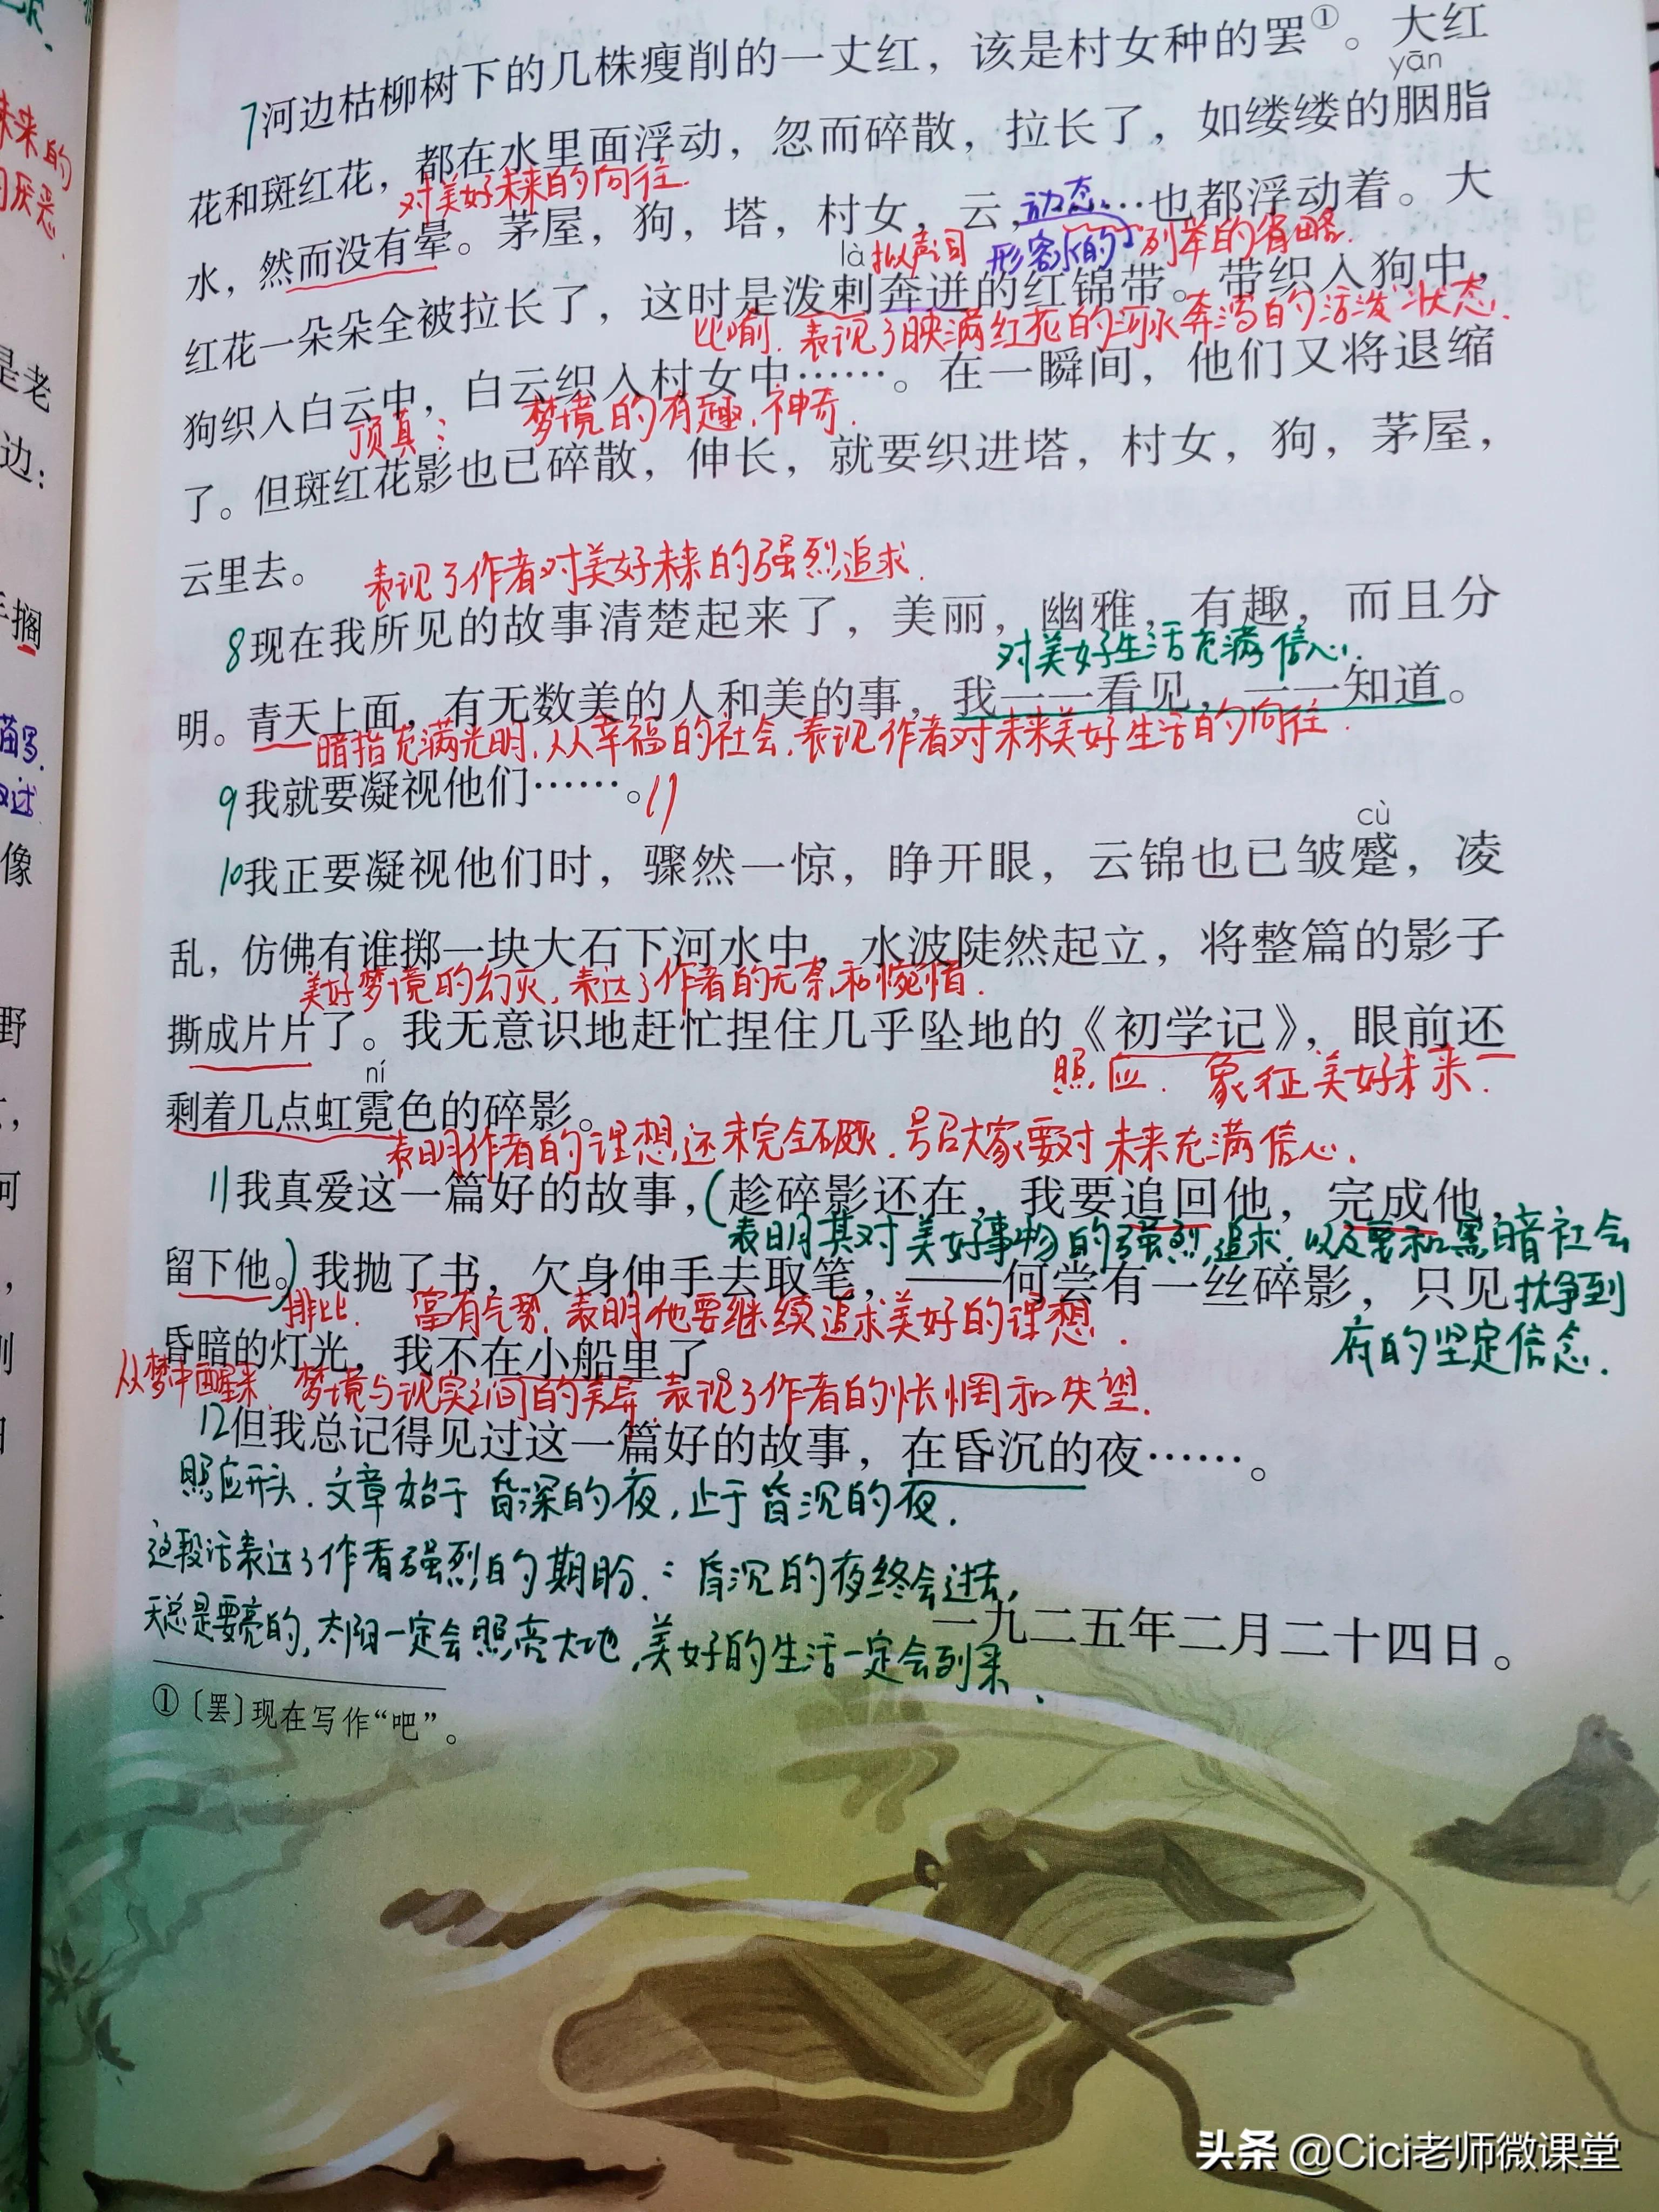 7河边枯柳树下的几株瘦削的一丈红，该是村女种的罢①。大红
yān
花和斑红花，都在水里面浮动，忽而碎散，拉长了，如缕缕的胭脂
对美好未来的向往.
水，然而没有晕。茅屋，狗，塔，村女，云，……也都浮动着。大
动态
là 拟声词 形容水的 列举的省略.
红花一朵朵全被拉长了，这时是泼剌奔迸的红锦带。带织入狗中，
比喻. 表现了映满红花的河水奔泻的活泼状态.
狗织入白云中，白云织入村女中……。在一瞬间，他们又将退缩
顶真： 梦境的有趣、神奇.
了。但斑红花影也已碎散，伸长，就要织进塔，村女，狗，茅屋，
云里去。
表现了作者对美好未来的强烈追求.
8现在我所见的故事清楚起来了，美丽，幽雅，有趣，而且分
对美好生活充满信心.
明。青天上面，有无数美的人和美的事，我一一看见，一一知道。
暗指充满光明、人人幸福的社会.表现作者对未来美好生活的向往.
9我就要凝视他们……。//
cù
10我正要凝视他们时，骤然一惊，睁开眼，云锦也已皱蹙，凌
乱，仿佛有谁掷一块大石下河水中，水波陡然起立，将整篇的影子
美好梦境的幻灭，表达了作者的无奈和惋惜.
撕成片片了。我无意识地赶忙捏住几乎坠地的《初学记》，眼前还
照应. 象征美好未来
ní
剩着几点虹霓色的碎影。
表明作者的理想还未完全破灭.号召大家要对未来充满信心.
11我真爱这一篇好的故事，(趁碎影还在，我要追回他，完成他，
表明其对美好事物的强烈追求，以及要和黑暗社会
留下他。)我抛了书，欠身伸手去取笔，——何尝有一丝碎影，只见
抗争到
排比. 富有气势，表明他要继续追求美好的理想.
府的坚定信念.
昏暗的灯光，我不在小船里了。
从梦中醒来. 梦境与现实之间的差异.表现了作者的怅惘和失望.
12但我总记得见过这一篇好的故事，在昏沉的夜……。
照应开头.文章始于昏深的夜，止于昏沉的夜.
这段话表达了作者强烈的期盼.：昏沉的夜终会过去，
天总是要亮的，太阳一定会照亮大地，美好的生活一定会到来.
一九二五年二月二十四日。
①〔罢〕现在写作“吧”。
未来的
厌恶.
是老
边：
搁
苗写.
像
野
可
头条 @Cici老师微课堂